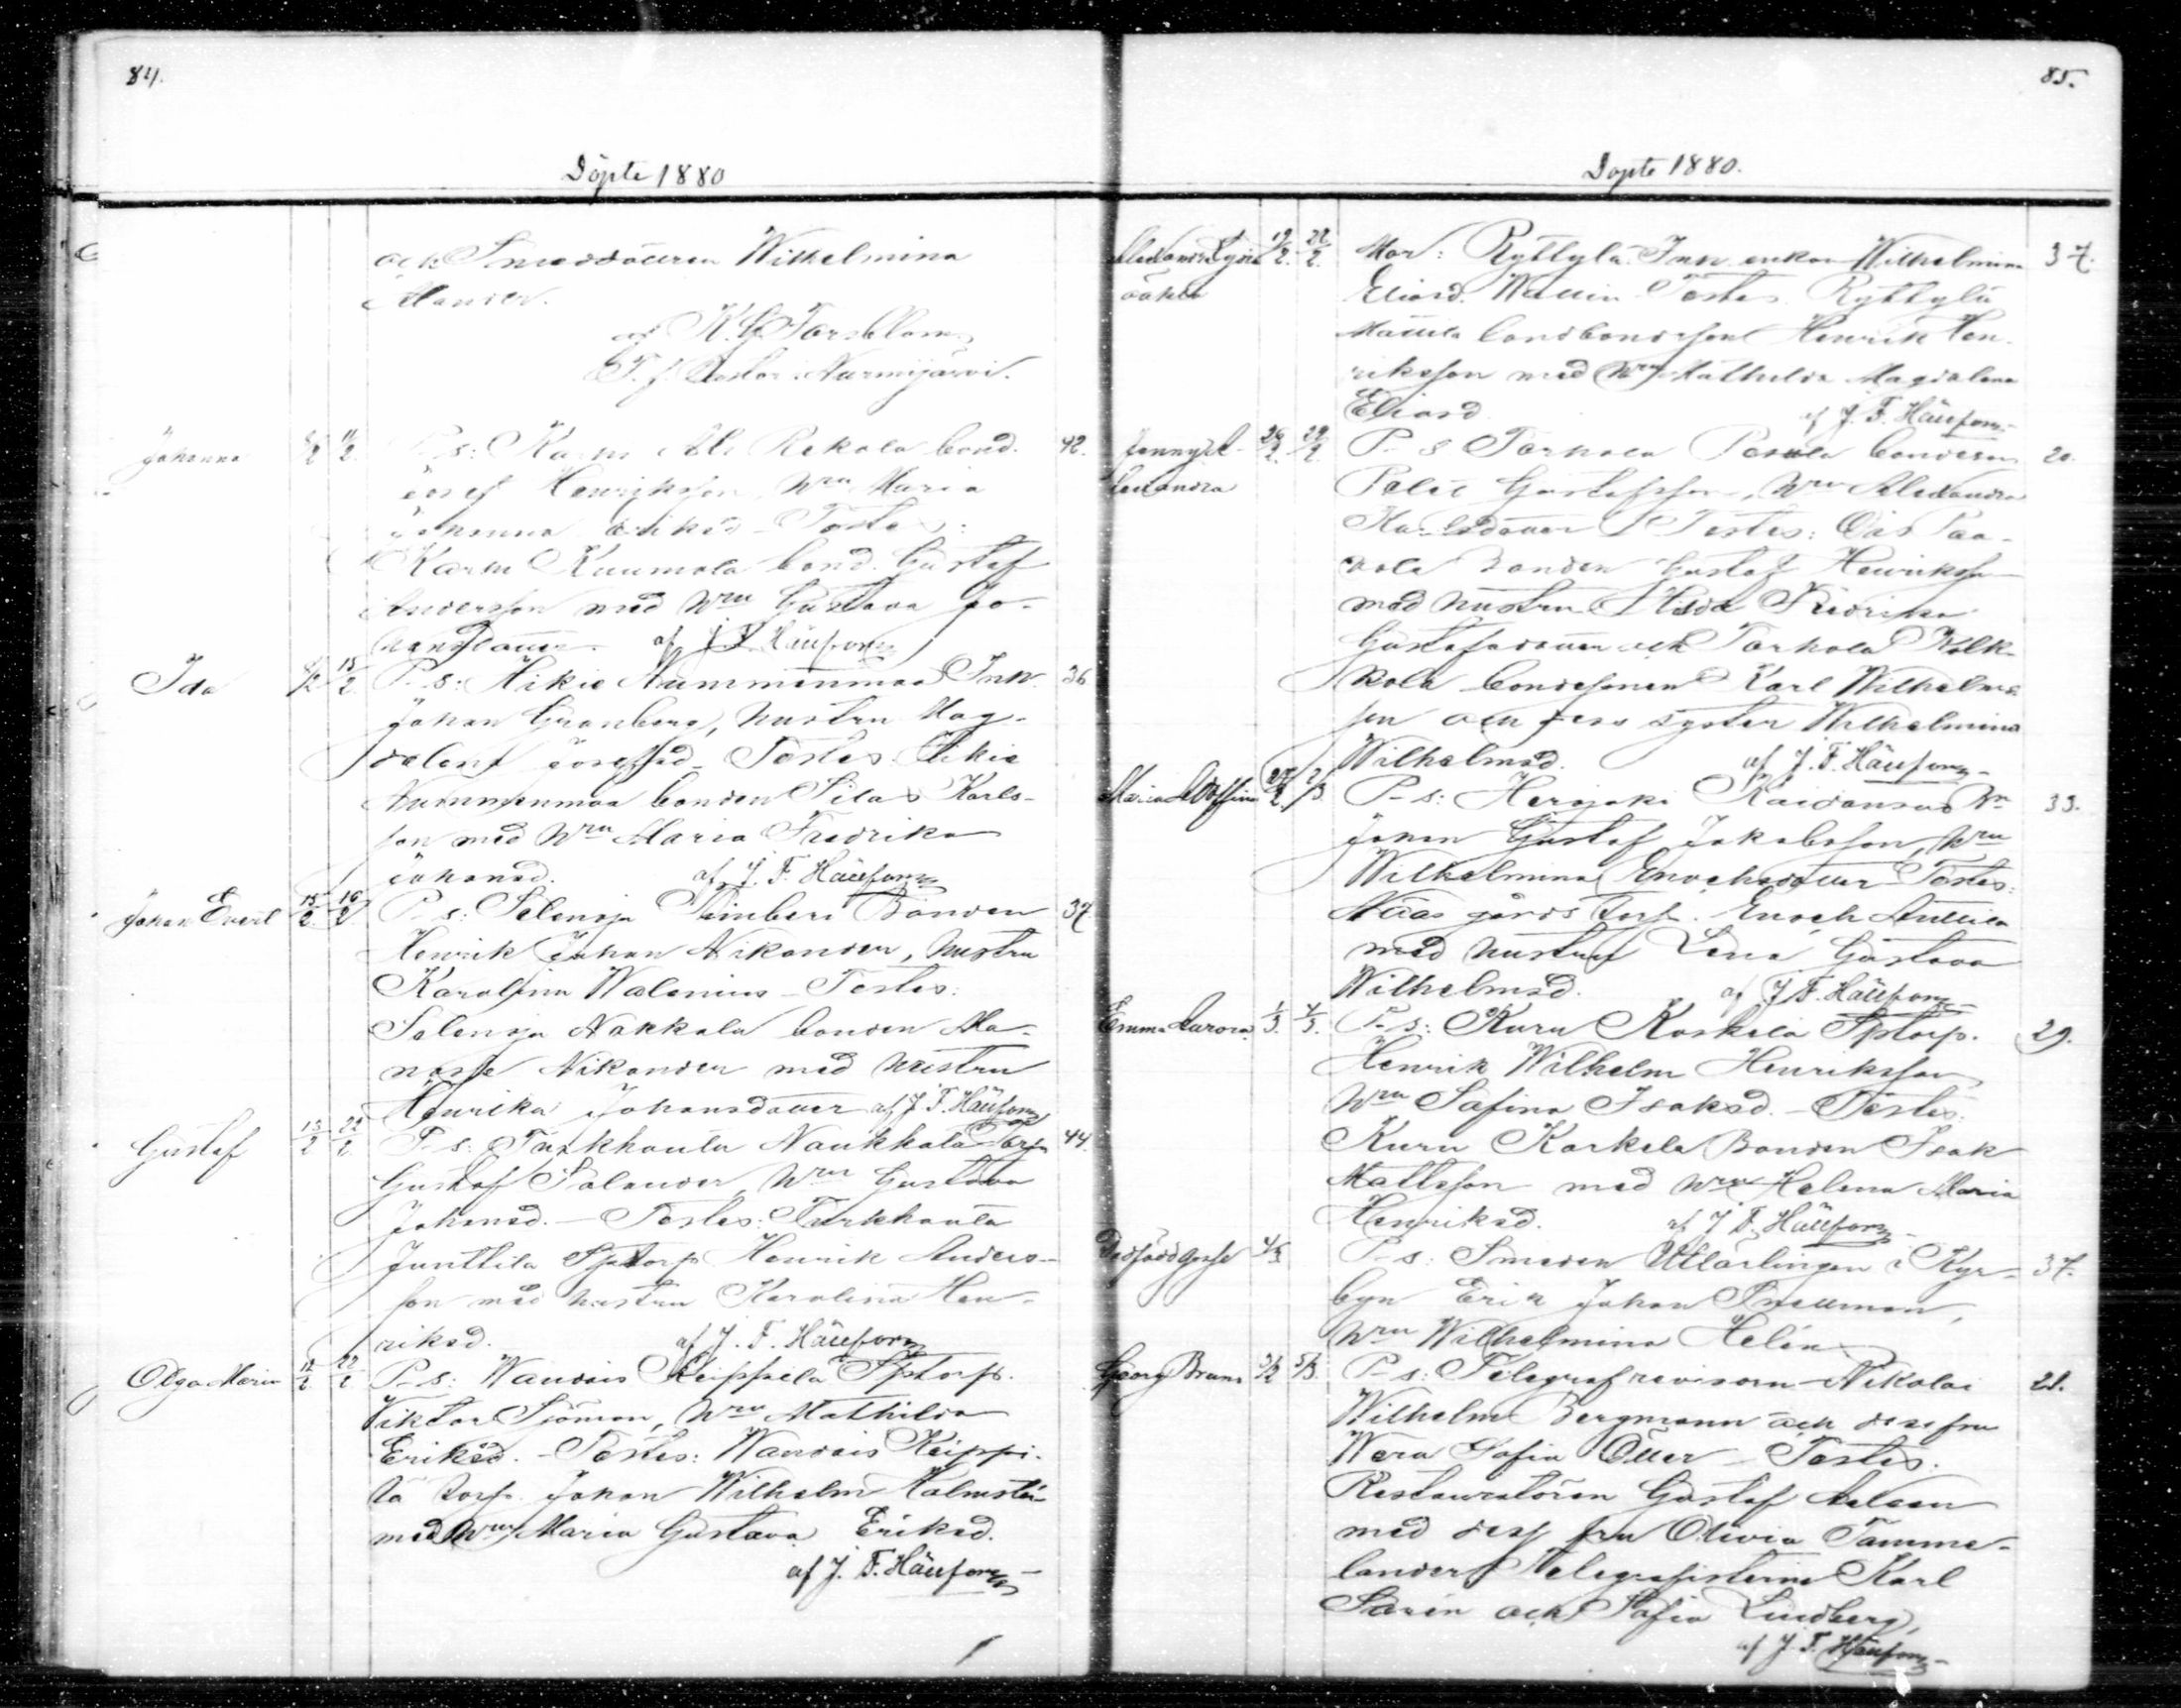 84.
Döpte 1880
och Smeddottren Wilhelmina
Mander.
af K. G. Forsblom
T. f. Pastor i Nurmijärvi.
Johanna 8/2 11/2 P-s: Karm Ali Rekola bond. 42.
Josef Henriksson, hru Maria
Johanna Eriksd. Testes:
Karm Kuumola bond. Gustaf
Andersson med hru Gustava Jo-
hansdotter. af J. F. Hällfors
Ida 8/2 15/2 P-s: Hikiä Nummenmaa Inh. 36
Johan Granberg, hustru Mag-
dalena Josefsd. Testes Hikiä
Nummenmaa bonden Silas Karls-
son med hru Maria Fredrika
Johansd. af J. F. Hällfors
Johan Evert 15/2 16/2 P-s: Selenoja Simberi Bonden 37
Henrik Johan Nikander, hustru
Karolina Walenius - Testes:
Selenoja Nakkala bonden Ma-
nasse Nikander med hustru
Henrika Johansdotter af J. F. Hällfors
Gustaf 13/2 22/2 P-s: Turkhauta Naukkala Torp. 44.
Gustaf Salander, hru Gustava
Johansd. - Testes: Turkhauta
Junttila Sptorp. Henrik Anders-
son med hustru Karolina Hen-
riksd. af J. F. Hällfors
Olga Maria 12/2 22/2 P-s: Wanais Keippilä Sptorp.
Viktor Sjöman, hru Mathilda
Eriksd. - Testes: Wanais Keippi-
lä torp. Johan Wilhelm Halmstén
med hru Maria Gustava Eriksd.
af J. F. Hällfors
85.
Döpte 1880.
Alexandra Lydia 19/2 22/2 Mor: Ryttylä Inh. enkan Wilhelmina 37.
oäkta Eliasd. Wallin Testes Ryttylä
Mattila landbondesson Henrik Hen-
riksson med hru Mathilda Magdalena
Eliasd. af J. F. Hällfors
Jenny A- 26/2 29/2 P-s Torhola Pesula bondeson 20.
lexandra Gustafsson, hru Alexandra
Karlsdotter Testes: Ois Paa-
vola Bonden Gustaf Henriksson
med hustru Hilda Fredrika
Gustafsdotter och Torhola Kolk-
kola bondesonen Karl Wilhelms-
son och dess syster Wilhelmina
Wilhelmsd. af J. F. Hällfors
Maria Adolfina 27/2 2/3 P-s: Herajoki 33.
Johan Gustaf Jakobsson, hru
Wilhelmina Enochsdotter Testes:
Näås gårds torp. Enoch Anttila
med hustru Lena Gustava
Wilhelmsd. af J. F. Hällfors
Emma Aurora 1/3 4/3 P-s: Kuru Koskela Sptorp. 29.
Henrik Wilhelm Henriksson
hru Safina Isaksd. - Testes:
Kuru Korkela Bonden Isak
Mattsson med hru Helena Maria
Henriksd. af J. F. Hällfors
Dödfödd gosse 4/3 P-s: Smeden Utlärlingen i Kyr- 37.
byn Erik Johan Snellman,
hru Wilhelmina Helin
Georg Bruno 5/2 5/3 P-s: Telegrafrevisorn Nikolai 28.
Wilhelm Bergmann och dess fru
Wera Sofia Öller - Testes.
Restauratören Gustaf
med dess fru Olivia Tamme-
lander, Telegrafisterne Karl
Sarén och Sofia Lindberg,
af J. F. Hällfors